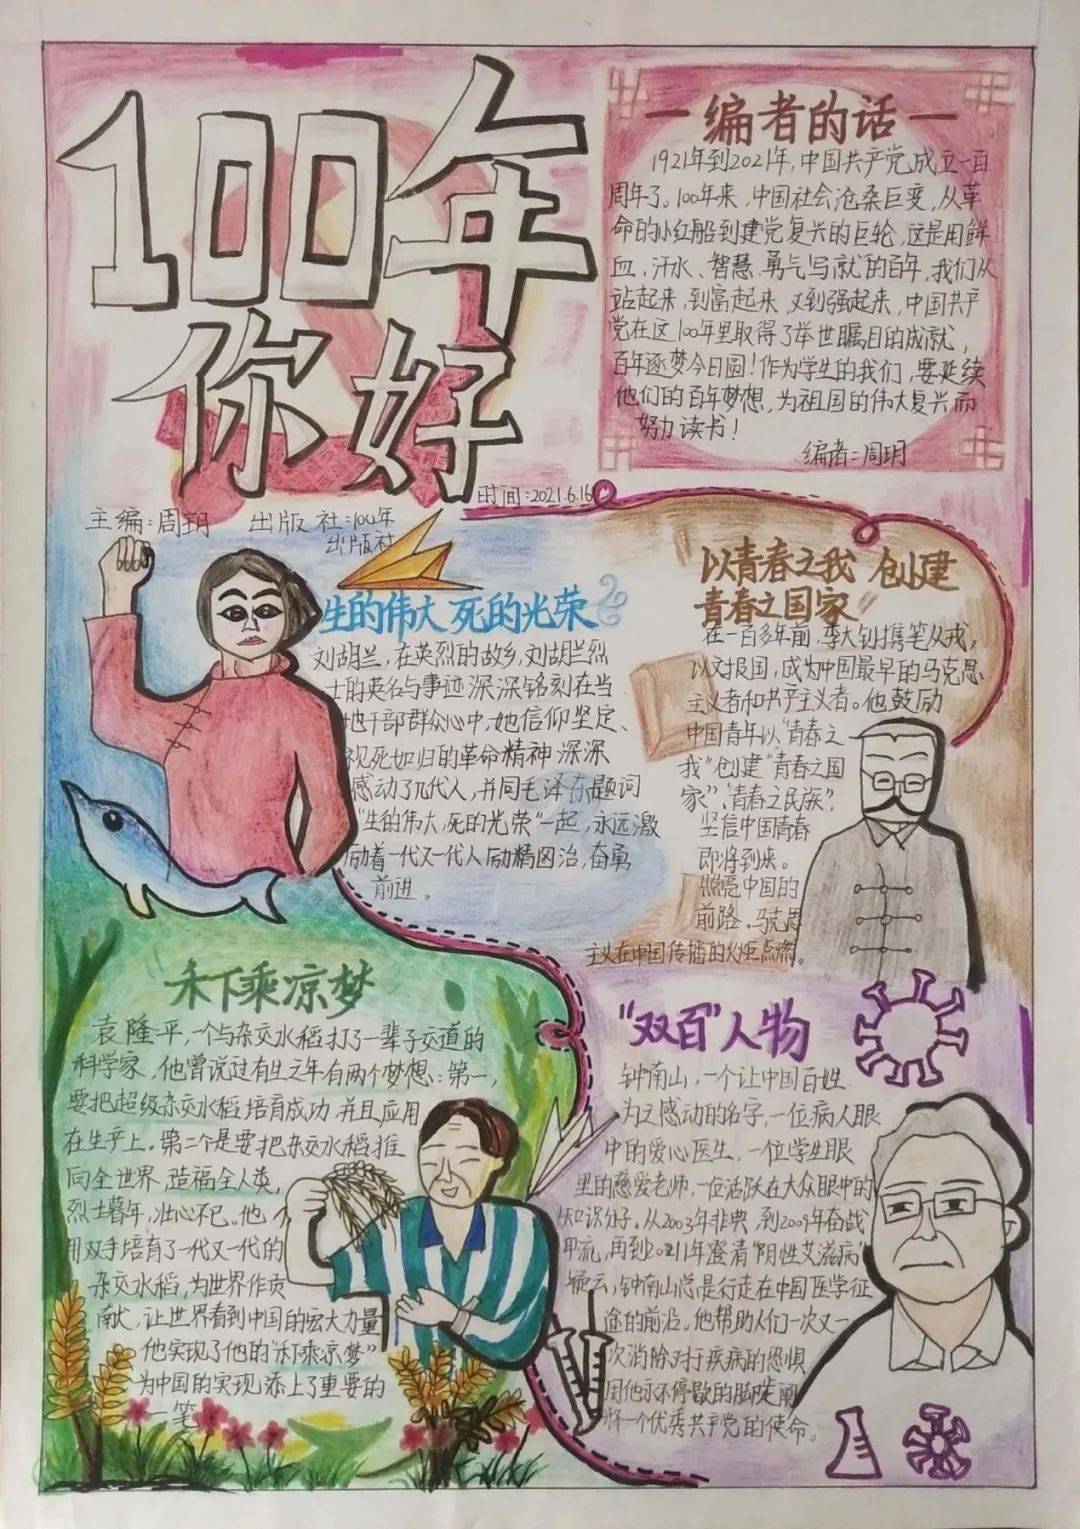 100年
你好
时间:2021.6.16
主编:周玥 出版社:100年
出版社
一编者的话一
1921年到2021年,中国共产党成立一百
周年了。100年来,中国社会沧桑巨变,从革
命的小红船到建党复兴的巨轮,这是用鲜
血、汗水、智慧、勇气写就的百年,我们从
站起来,到富起来,又到强起来,中国共产
党在这100年里取得了举世瞩目的成就,
百年逐梦今日圆!作为学生的我们,要延续
他们的百年梦想,为祖国的伟大复兴而
努力读书!
编者:周玥
生的伟大 死的光荣
刘胡兰,在英烈的故乡,刘胡兰烈
士的英名与事迹深深铭刻在当
地干部群众心中,她信仰坚定、
视死如归的革命精神深深
感动了几代人,并同毛泽东题词
"生的伟大,死的光荣"一起,永远激
励着一代又一代人励精图治,奋勇
前进。
以青春之我 创建
青春之国家
在一百多年前,李大钊携笔从戎,
以文报国,成为中国最早的马克思
主义者和共产主义者。他鼓励
中国青年以"青春之
我"创建"青春之国
家"、"青春之民族",
坚信中国青春
即将到来。
照亮中国的
前路、马克思
主义在中国传播的火炬点燃。
禾下乘凉梦
袁隆平,一个与杂交水稻打了一辈子交道的
科学家,他曾说过有生之年有两个梦想:第一,
要把超级杂交水稻培育成功,并且应用
在生产上。第二个是要把杂交水稻推
向全世界,造福全人类,
烈士暮年,壮心不已。他
用双手培育了一代又一代的
杂交水稻,为世界作贡
献,让世界看到中国的宏大力量
他实现了他的"禾下乘凉梦"
为中国的实现添上了重要的
一笔
"双百"人物
钟南山,一个让中国百姓
为之感动的名字,一位病人眼
中的爱心医生,一位学生眼
里的慈爱老师,一位活跃在大众眼中的
知识分子。从2003年非典,到2009年奋战
甲流,再到2011年澄清"阴性艾滋病"
疑云,钟南山总是行走在中国医学征
途的前沿。他帮助人们一次又一
次消除对于疾病的恐惧
用他永不停歇的脚步阐
怀一个优秀共产党的使命。